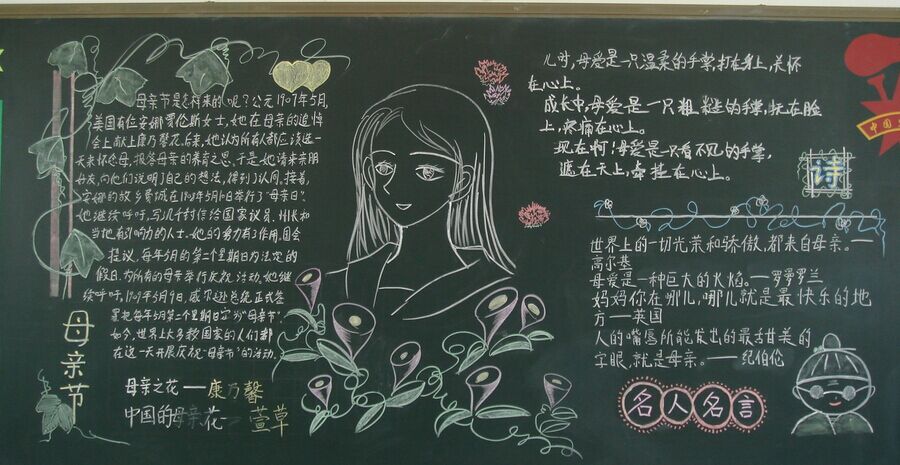 母亲节是怎样来的呢？公元1907年5月，
美国有位安娜罗伦斯女士，她在母亲的追悼
会上献上康乃馨花。后来，她认为所有人都应该选一
天来怀念母亲，报答母亲的养育之恩。于是，她请来亲朋
好友，向他们说明了自己的想法，得到了认同。接着，
安娜的故乡费城在1908年5月10日举行了"母亲日"。
她继续呼吁，写几千封信给国家议员、州长和
当地有影响力的人士。她的努力有了作用。国会
提议，每年5月的第二个星期日为法定的
假日，为所有的母亲举行庆祝活动。她继
续呼吁，
总统正式签
署把每年5月第二个星期日定为"母亲节"。
如今，世界上大多数国家的人们都
在这一天开展庆祝"母亲节"的活动。
母亲节
母亲之花——康乃馨
中国的母亲花——萱草
儿时，母爱是一只温柔的手掌，打在身上，关怀
在心上。
成长中，母爱是一只粗糙的手掌，抚在脸
上，疼痛在心上。
现在啊！母爱是一只看不见的手掌，
遮在天上，牵挂在心上。
诗
世界上的一切光荣和骄傲，都来自母亲。——
高尔基
母爱是一种巨大的火焰。——罗曼罗兰
妈妈你在哪儿，哪儿就是最快乐的地
方——英国
人的嘴唇所能发出的最甜美的
字眼，就是母亲。——纪伯伦
名人名言
中国